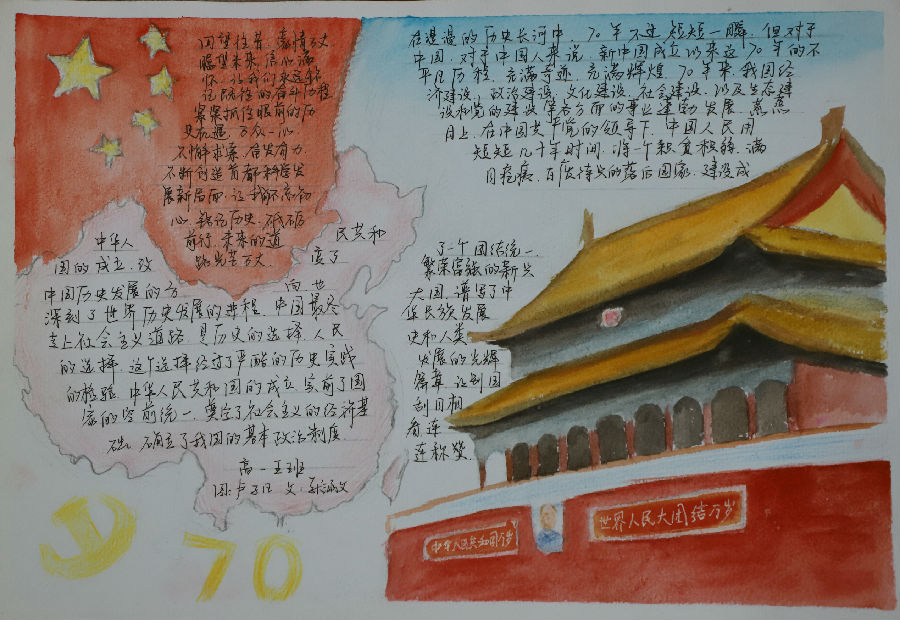 回望往昔,豪情万丈
瞻望未来,信心满
怀,让我们永远铭
记先性的奋斗历程
紧紧抓住眼前的历
史机遇,万众一心
不懈求索,奋发有为
不断创造首都科学发
展新局面,让我们不忘初
心,铭记历史,砥砺
前行,未来的道
路光芒万丈.
在漫漫的历史长河中,70年不过短短一瞬,但对于
中国,对于中国人来说,新中国成立以来这70年的不
平凡历程,充满奇迹,充满辉煌,70年来,我国经
济建设,政治建设,文化建设,社会建设,以及生态建
设和党的建设等各方面的事业建勃发展,蒸蒸
日上,在中国共产党的领导下,中国人民用
短短几十年时间,将一个积贫积弱,满
目疮痍,百废待兴的落后国家,建设成
了一个团结统一,
繁荣富强的新兴
大国,谱写了中
华民族发展
史和人类
发展的光辉
篇章,让别国
刮目相
看连
连称赞.
中华人 民共和
国的成立,改 变了
中国历史发展的方 向 也
深刻了世界历史发展的进程,中国最终
走上社会主义道路,是历史的选择,人民
的选择,这个选择经过了严酷的历史实践
的检验,中华人民共和国的成立,实前了国
家的空前统一,奠定了社会主义的经济基
础,确立了我国的基本政治制度
高一 班
图: 文:
70
中华人民共和国万岁
世界人民大团结万岁